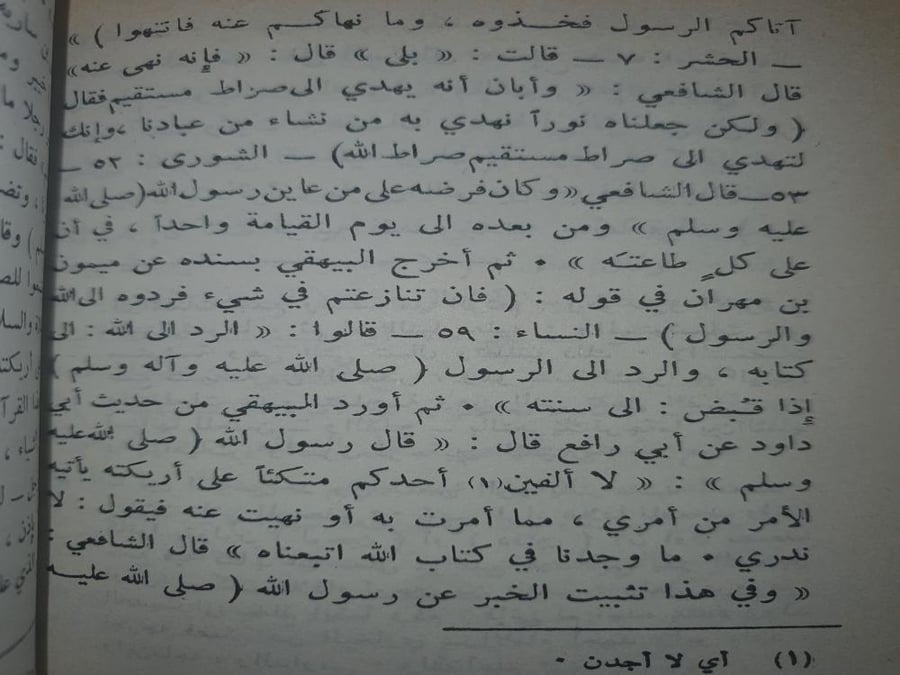 آتاكم الرسول فخذوه ، وما نهاكم عنه فانتهوا ) »
ــ الحشر : ٧ ــ قالت : « بلى » قال : « فإنه نهى عنه»
قال الشافعي : « وأبان أنه يهدي الى صراط مستقيم فقال
( ولكن جعلناه نوراً نهدي به من نشاء من عبادنا ،وإنك
لتهدي الى صراط مستقيم صراط الله) ــ الشورى : ٥٢ ــ
٥٣ــ قال الشافعي «وكان فرضه على من عاين رسول الله (صلى الله
عليه وسلم » ومن بعده الى يوم القيامة واحداً ، في أن
على كلٍ طاعتَه » . ثم أخرج البيهقي بسنده عن ميمون
بن مهران في قوله : ( فان تنازعتم في شيء فردوه الى الله
والرسول ) ــ النساء : ٥٩ ــ قالوا : « الرد الى الله : الى
كتابه ، والرد الى الرسول ( صلى الله عليه وآله وسلم )
إذا قُبض : الى سنته » . ثم أورد البيهقي من حديث أبي
داود عن أبي رافع قال : « قال رسول الله ( صلى الله عليه
وسلم » : « لا ألفين(١) أحدكم متكئاً على أريكته يأتيه
الأمر من أمري ، مما أمرت به أو نهيت عنه فيقول : لا
ندري . ما وجدنا في كتاب الله اتبعناه » قال الشافعي :
« وفي هذا تثبيت الخبر عن رسول الله ( صلى الله عليه
(١) أي لا أجدن .